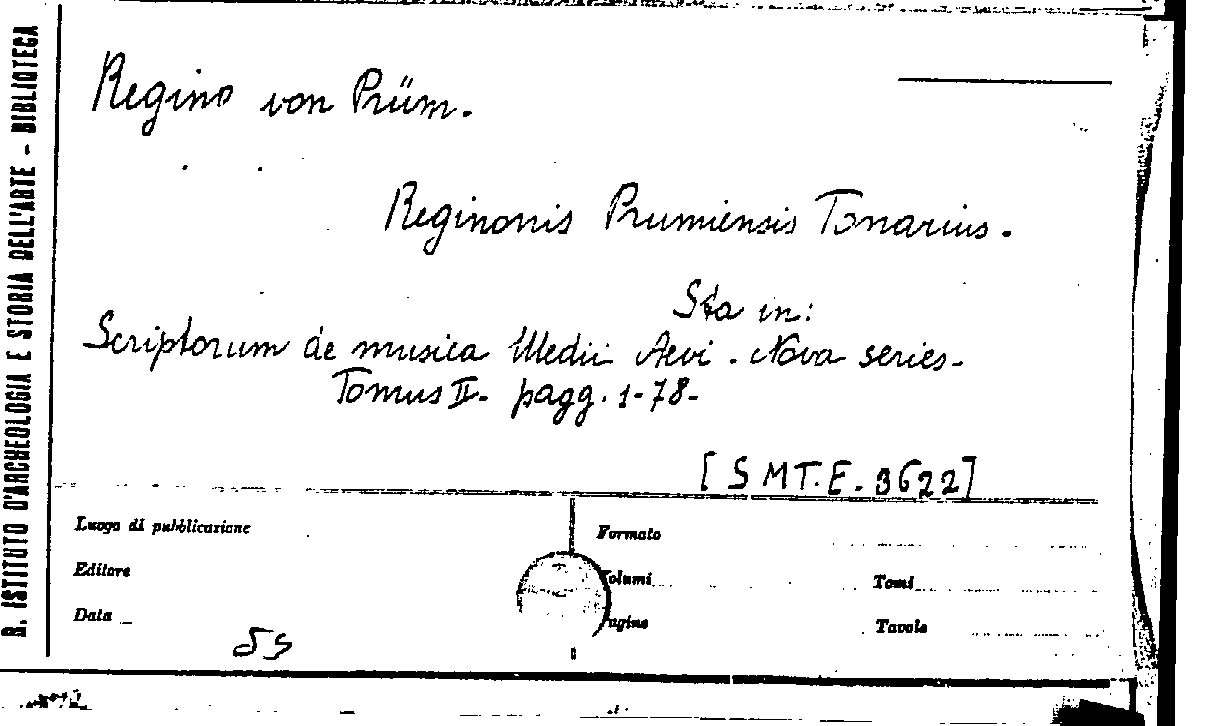 R. ISTITUTO D'ARCHEOLOGIA E STORIA DELL'ARTE - BIBLIOTECA
Regino von Prüm.
Reginonis Prumiensis Tonarius.
Sta in:
Scriptorum de musica Medii Aevi. Nova series-
Tomus II- pagg. 1-78-
[SMT.E.3622]
Luogo di pubblicazione
Formato
Editore
Volumi
Tomi
Data
Pagine
Tavole